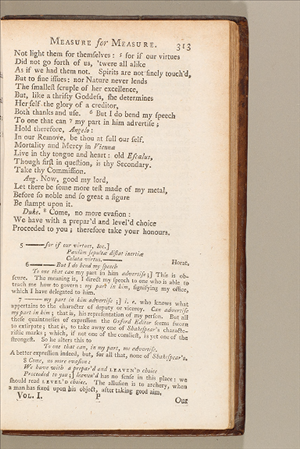 MEASURE for MEASURE. 313
Not light them for themselves: ⁵ for if our virtues
Did not go forth of us, 'twere all alike
As if we had them not. Spirits are not finely touch'd,
But to fine issues: nor Nature never lends
The smallest scruple of her excellence,
But, like a thrifty Goddess, she determines
Her self the glory of a creditor,
Both thanks and use. ⁶ But I do bend my speech
To one that can ⁷ my part in him advertise;
Hold therefore, Angelo:
In our Remove, be thou at full our self.
Mortality and Mercy in Vienna
Live in thy tongue and heart: old Escalus,
Though first in question, is thy Secondary.
Take thy Commission.
Ang. Now, good my lord,
Let there be some more test made of my metal,
Before so noble and so great a figure
Be stampt upon it.
Duke. ⁸ Come, no more evasion:
We have with a prepar'd and level'd choice
Proceeded to you; therefore take your honours.
5 —— for if our virtues, &c.]
Paulum sepultæ distat inertiæ
Celata virtus.—— Horat.
6 —— But I do bend my speech
To one that can my part in him advertise;] This is obscure. The meaning is, I direct my speech to one who is able to
teach me how to govern: my part in him, signifying my office,
which I have delegated to him.
7 —— my part in him advertise;] i. e. who knows what
appertains to the character of deputy or viceroy. Can advertise
my part in him; that is, his representation of my person. But all
these quaintnesses of expression the Oxford Editor seems sworn
to extirpate; that is, to take away one of Shakespear's characteristic marks; which, if not one of the comliest, is yet one of the
strongest. So he alters this to
To one that can, in my part, me advertise.
A better expression indeed, but, for all that, none of Shakespear's.
8 Come, no more evasion:
We have with a prepar'd and LEAVEN'D choice
Proceeded to you;] leaven'd has no sense in this place: we
should read LEVEL'D choice. The allusion is to archery, when
a man has fixed upon his object, after taking good aim.
VOL. I. P Our